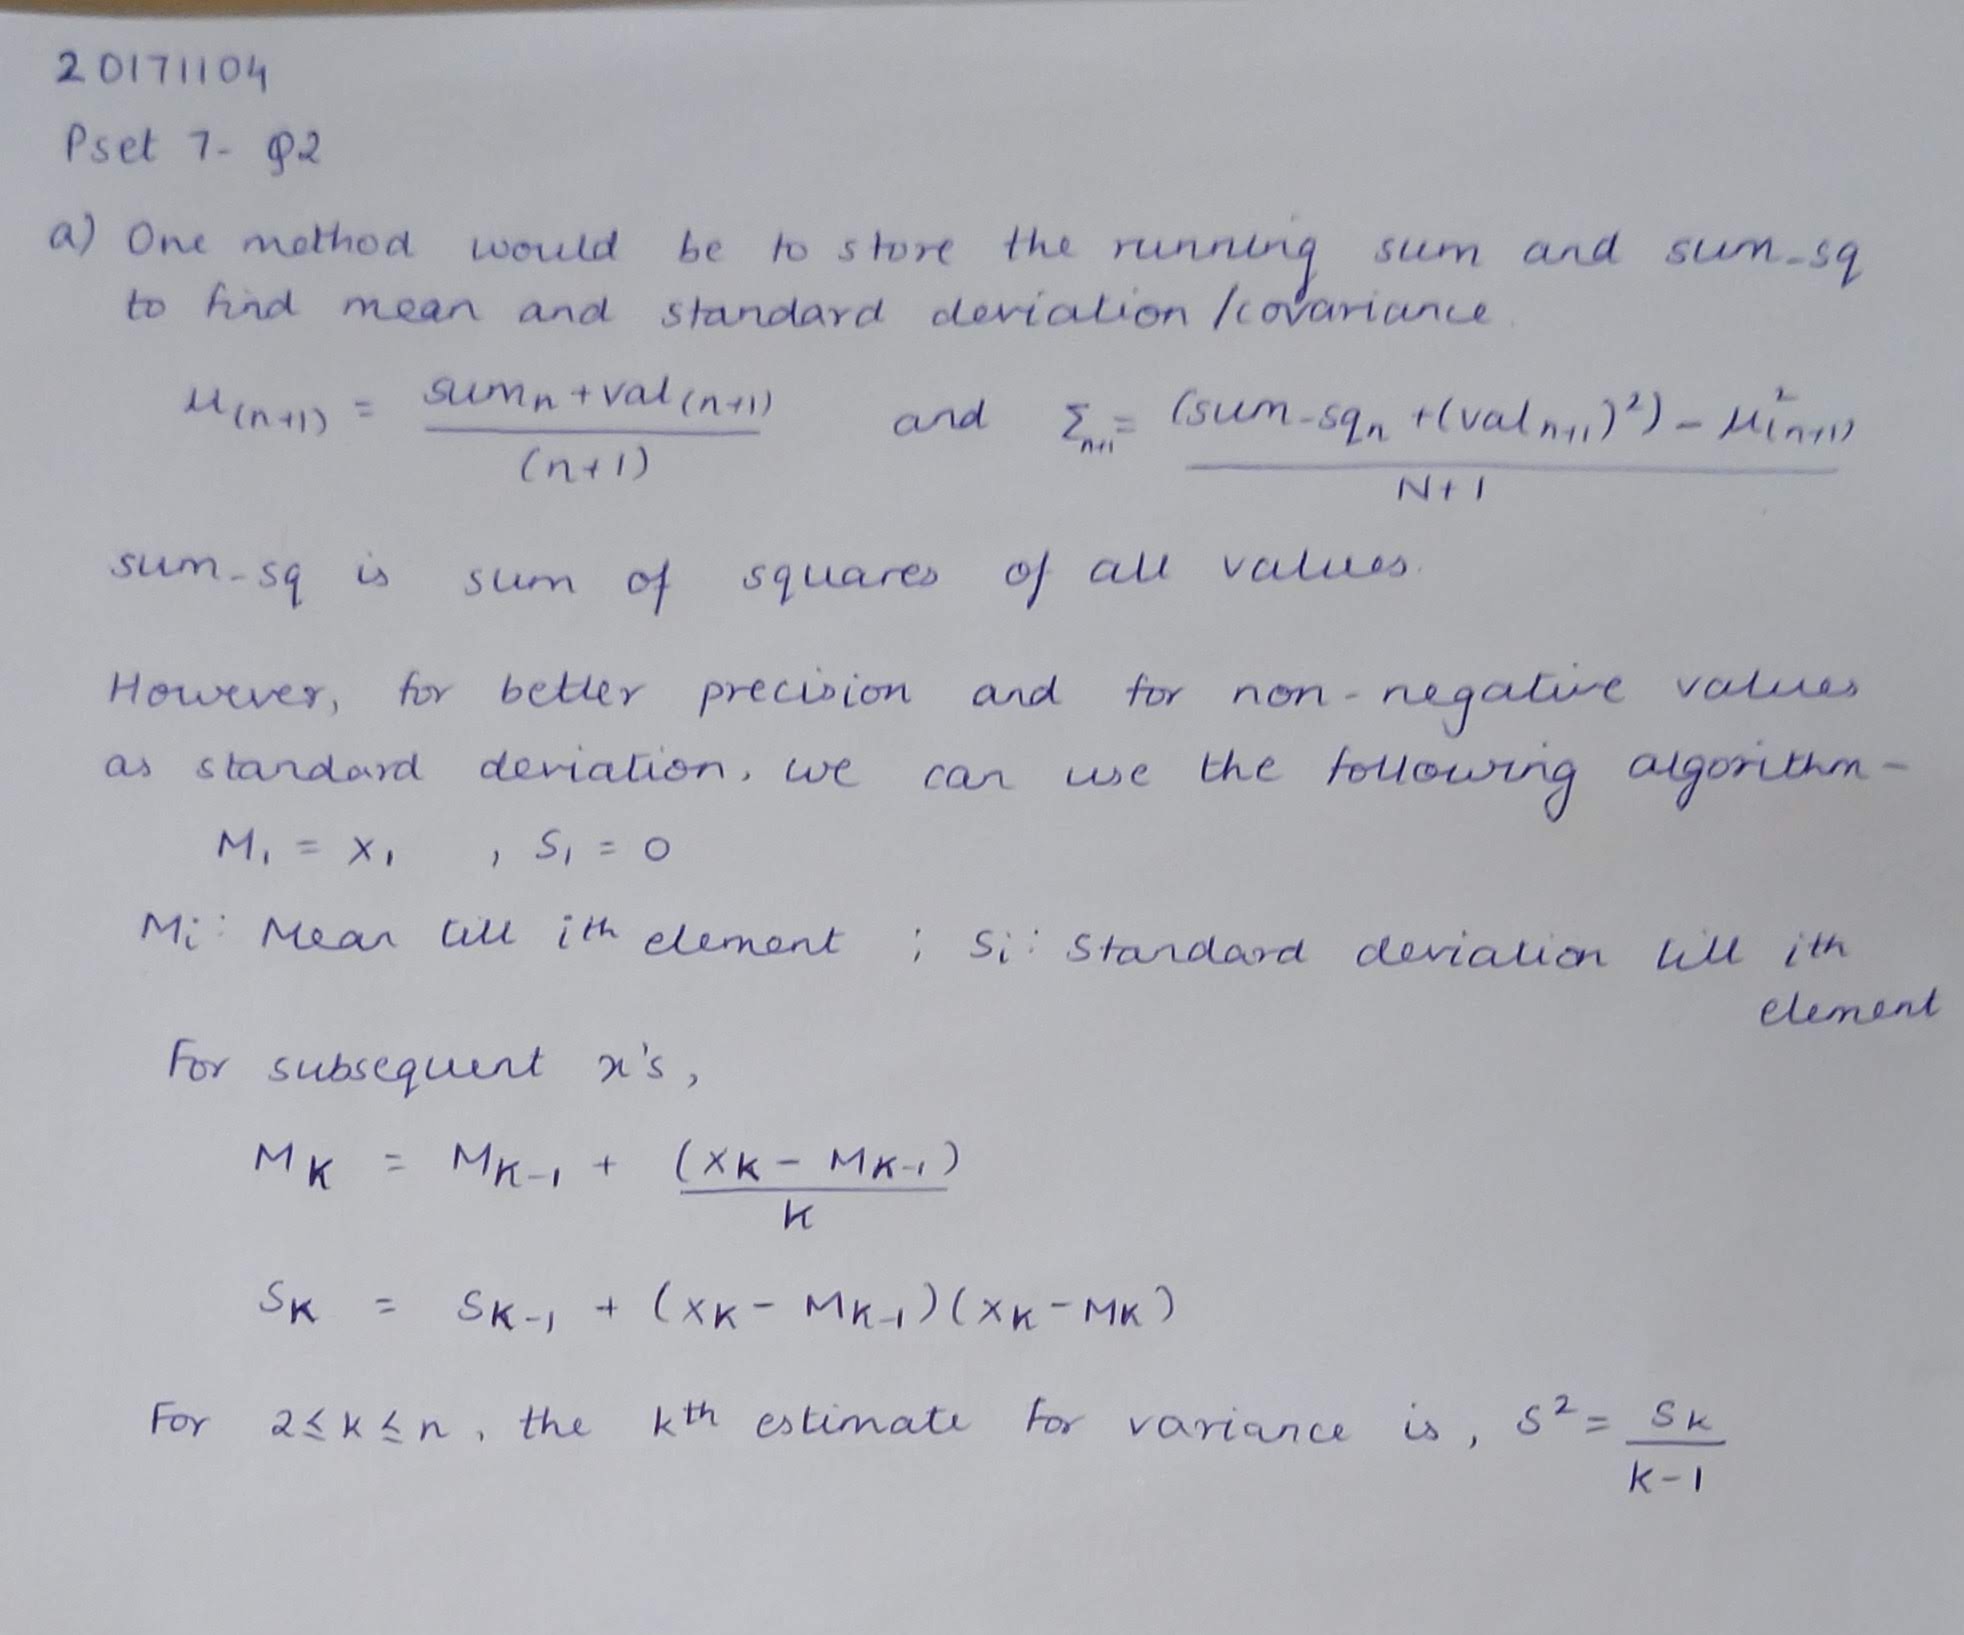 20171104
Pset 7- Q2
a) One method would be to store the running sum and sum_sq
to find mean and standard deviation /covariance.
μ(n+1) = (sumn + val(n+1)) / (n+1) and Σn+1 = ((sum-sqn + (valn+1)²) - μ²(n+1)) / N+1
sum-sq is sum of squares of all values.
However, for better precision and for non-negative values
as standard deviation, we can use the following algorithm-
M1 = x1 , S1 = 0
Mi: Mean till ith element ; Si: Standard deviation till ith
element
For subsequent x's,
MK = MK-1 + (xK - MK-1) / K
SK = SK-1 + (xK - MK-1)(xK - MK)
For 2≤k≤n, the kth estimate for variance is, s² = SK / k-1